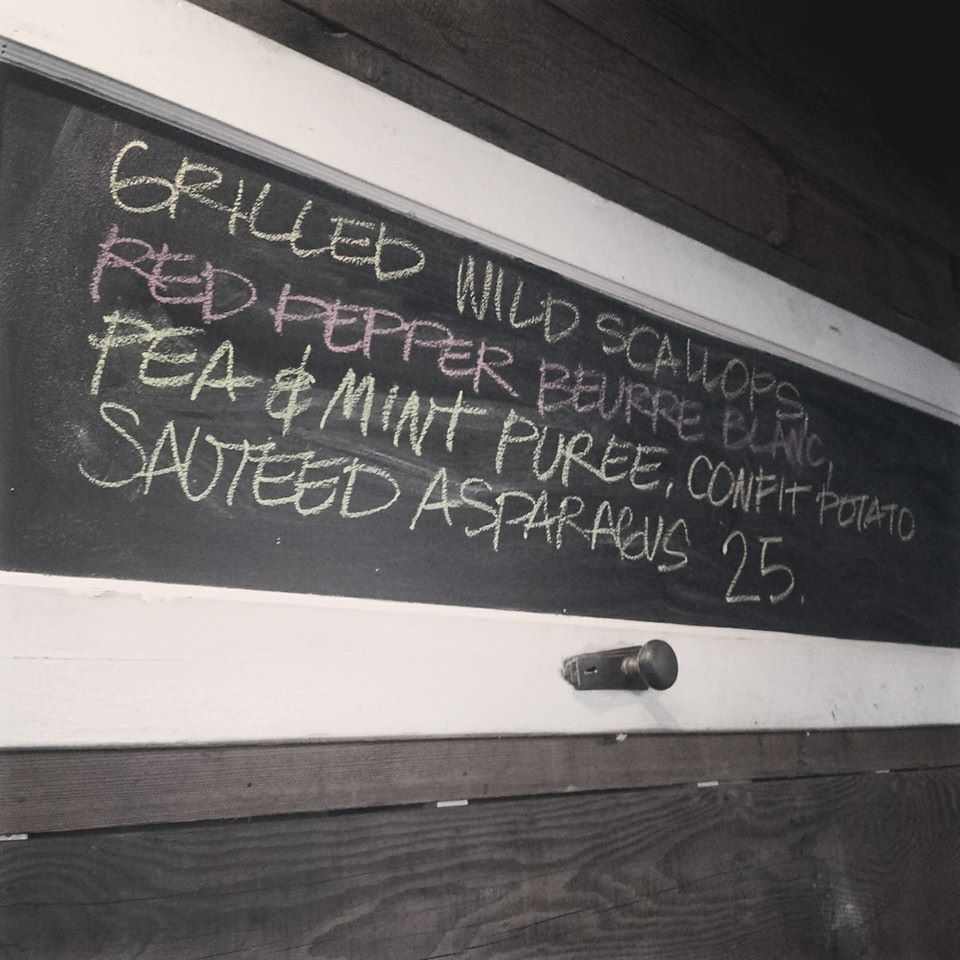 GRILLED WILD SCALLOPS,
RED PEPPER BEURRE BLANC,
PEA & MINT PUREE, CONFIT POTATO
SAUTEED ASPARAGUS 25.